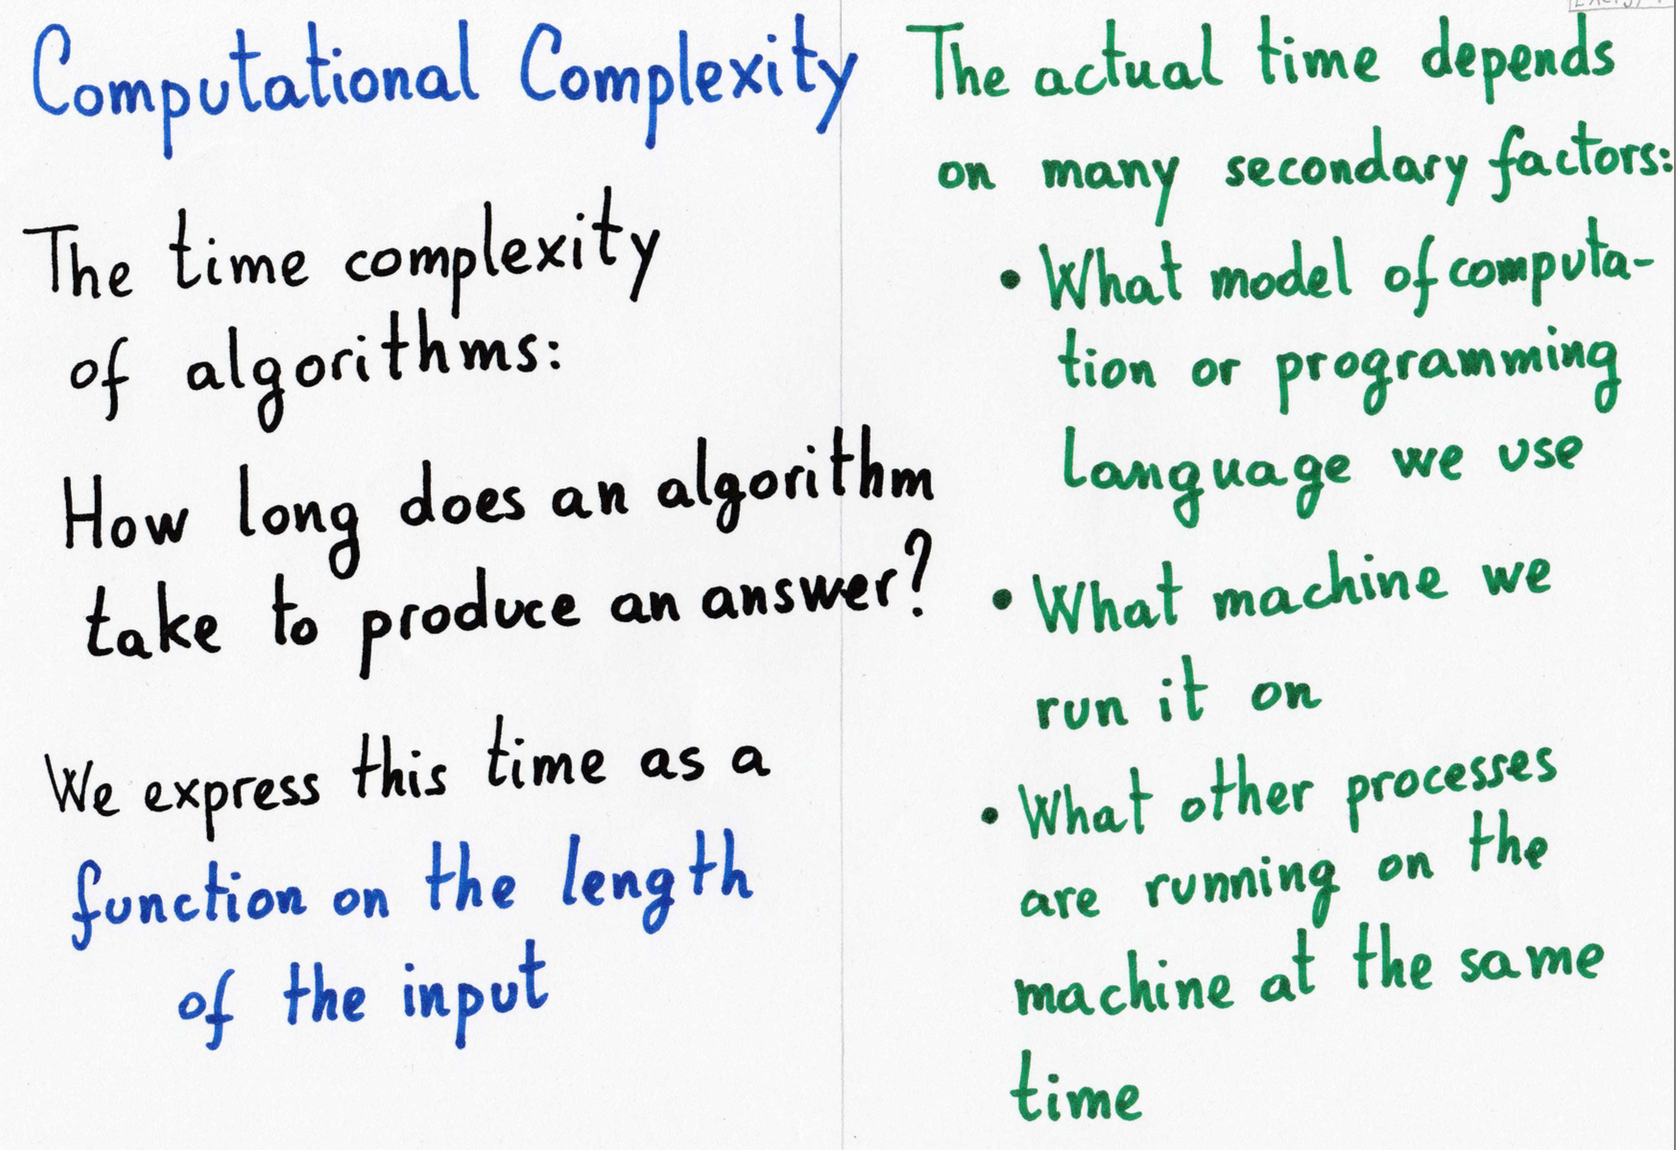 Computational Complexity
The time complexity
of algorithms:
How long does an algorithm
take to produce an answer?
We express this time as a
function on the length
of the input
The actual time depends
on many secondary factors:
• What model of computa-
tion or programming
language we use
• What machine we
run it on
• What other processes
are running on the
machine at the same
time